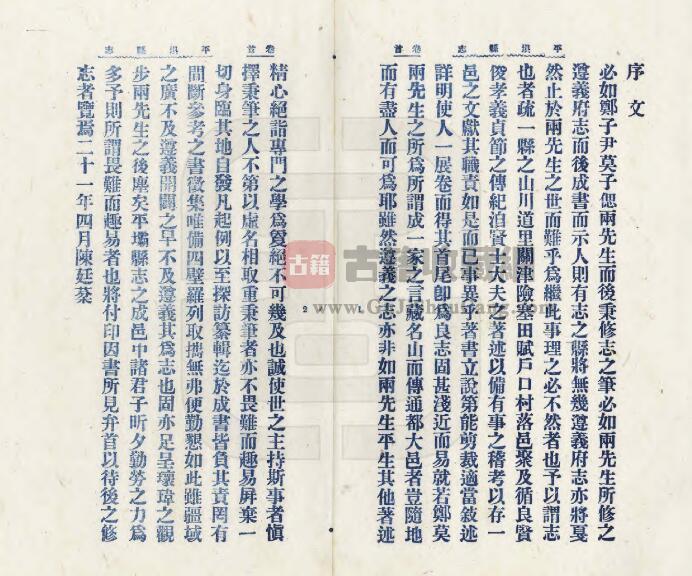 平壩縣志 卷首
序文
必如鄭子尹莫子偲兩先生而後秉修志之筆必如兩先生所修之
遵義府志而後成書而示人則有志之縣將無幾遵義府志亦將戛
然止於兩先生之世而難乎爲繼此事理之必不然者也予以謂志
也者疏一縣之山川道里關津險塞田賦戶口村落邑聚及循良賢
俊孝義貞節之傳紀洎賢士大夫之著述以備有事之稽考以存一
邑之文獻其職責如是而已事異乎著書立說第能剪裁適當敘述
詳明使人一展卷而得其首尾卽爲良志固甚淺近而易就若鄭莫
兩先生之所爲所謂成一家之言藏名山而傳通都大邑者豈隨地
而有盡人而可爲耶雖然遵義之志亦非如兩先生平生其他著述
1
平壩縣志 卷首
精心絕詣專門之學爲夐絕不可幾及也誠使世之主持斯事者愼
擇秉筆之人不第以虛名相取重秉筆者亦不畏難而趣易屏棄一
切身臨其地自發凡起例以至探訪纂輯迄於成書皆負其責罔有
間斷參考之書徵集唯備四壁羅列取攜無弗便勤懇如此雖疆域
之廣不及遵義開闢之早不及遵義其爲志也固亦足呈瓌瑋之觀
步兩先生之後塵矣平壩縣志之成邑中諸君子昕夕勤勞之力爲
多予則所謂畏難而趣易者也將付印因書所見弁首以待後之修
志者覽焉二十一年四月陳廷棻
2
古籍
古籍收藏網
www.GuJiShouCang.com